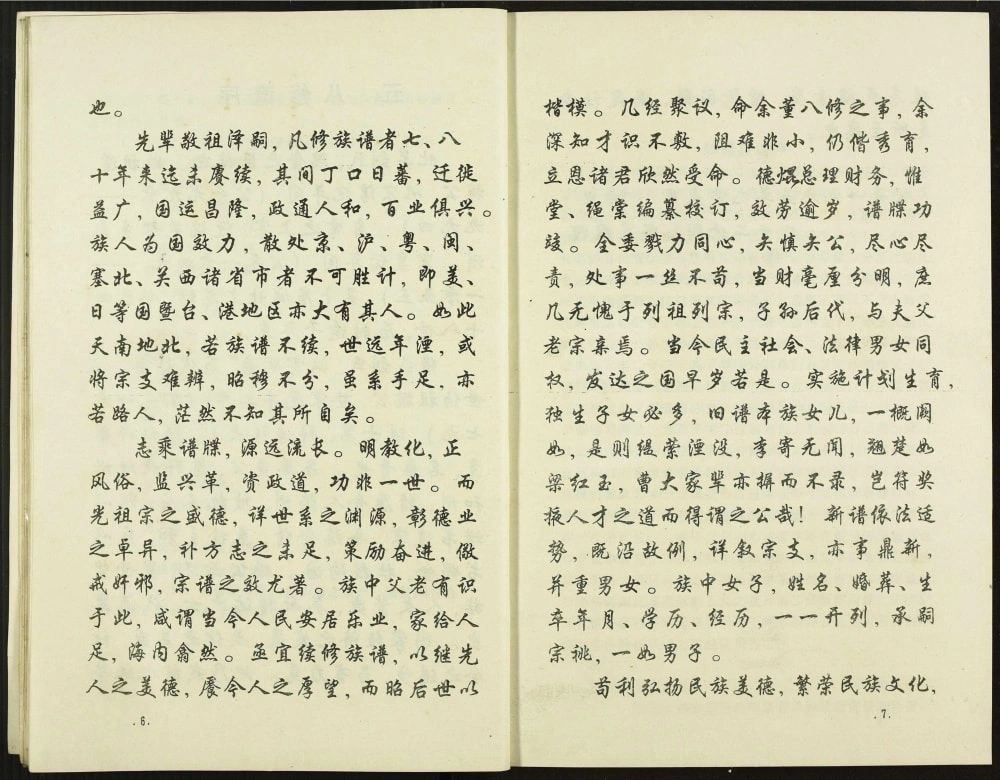 也。
先辈敬祖泽嗣，凡修族谱者七、八
十年来迄未赓续，其间丁口日蕃，迁徙
益广，国运昌隆，政通人和，百业俱兴。
族人为国效力，散处京、沪、粤、闽、
塞北、关西诸省市者不可胜计，即美、
日等国暨台、港地区亦大有其人。如此
天南地北，若族谱不续，世远年湮，或
将宗支难辨，昭穆不分，虽系手足，亦
若路人，茫然不知其所自矣。
志乘谱牒，源远流长。明教化，正
风俗，监兴革，资政道，功非一世。而
光祖宗之盛德，详世系之渊源，彰德业
之卓异，补方志之未足，策励奋进，儆
戒奸邪，宗谱之效尤著。族中父老有识
于此，咸谓当今人民安居乐业，家给人
足，海内翕然。亟宜续修族谱，以继先
人之美德，餍今人之厚望，而昭后世以
.6.
楷模。几经聚议，命余董八修之事，余
深知才识不敷，阻难非小，仍偕秀育，
立恩诸君欣然受命。德焜总理财务，惟
堂、绳棠编纂校订，效劳逾岁，谱牒功
竣。全委戮力同心，矢慎矢公，尽心尽
责，处事一丝不苟，当财毫厘分明，庶
几无愧于列祖列宗，子孙后代，与夫父
老宗亲焉。当今民主社会、法律男女同
权，发达之国早岁若是。实施计划生育，
独生子女必多，旧谱本族女儿，一概阙
如，是则缇萦湮没，李寄无闻，翘楚如
梁红玉，曹大家辈亦摒而不录，岂符奖
掖人才之道而得谓之公哉！新谱依法适
势，既沿故例，详叙宗支，亦事鼎新，
并重男女。族中女子，姓名、婚葬、生
卒年月、学历、经历，一一开列，承嗣
宗祧，一如男子。
苟利弘扬民族美德，繁荣民族文化，
.7.